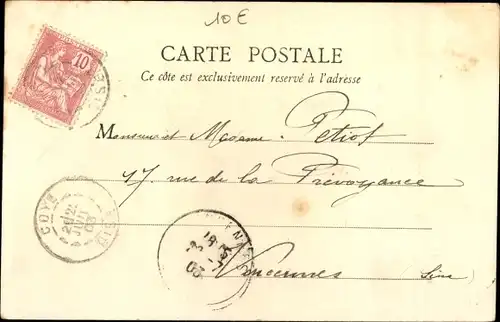 10 E
CARTE POSTALE
Ce côte est exclusivement reservé à l'adresse
10
Monsieur et Madame Petiot
17 rue de la Prévoyance
Vincennes (Seine)